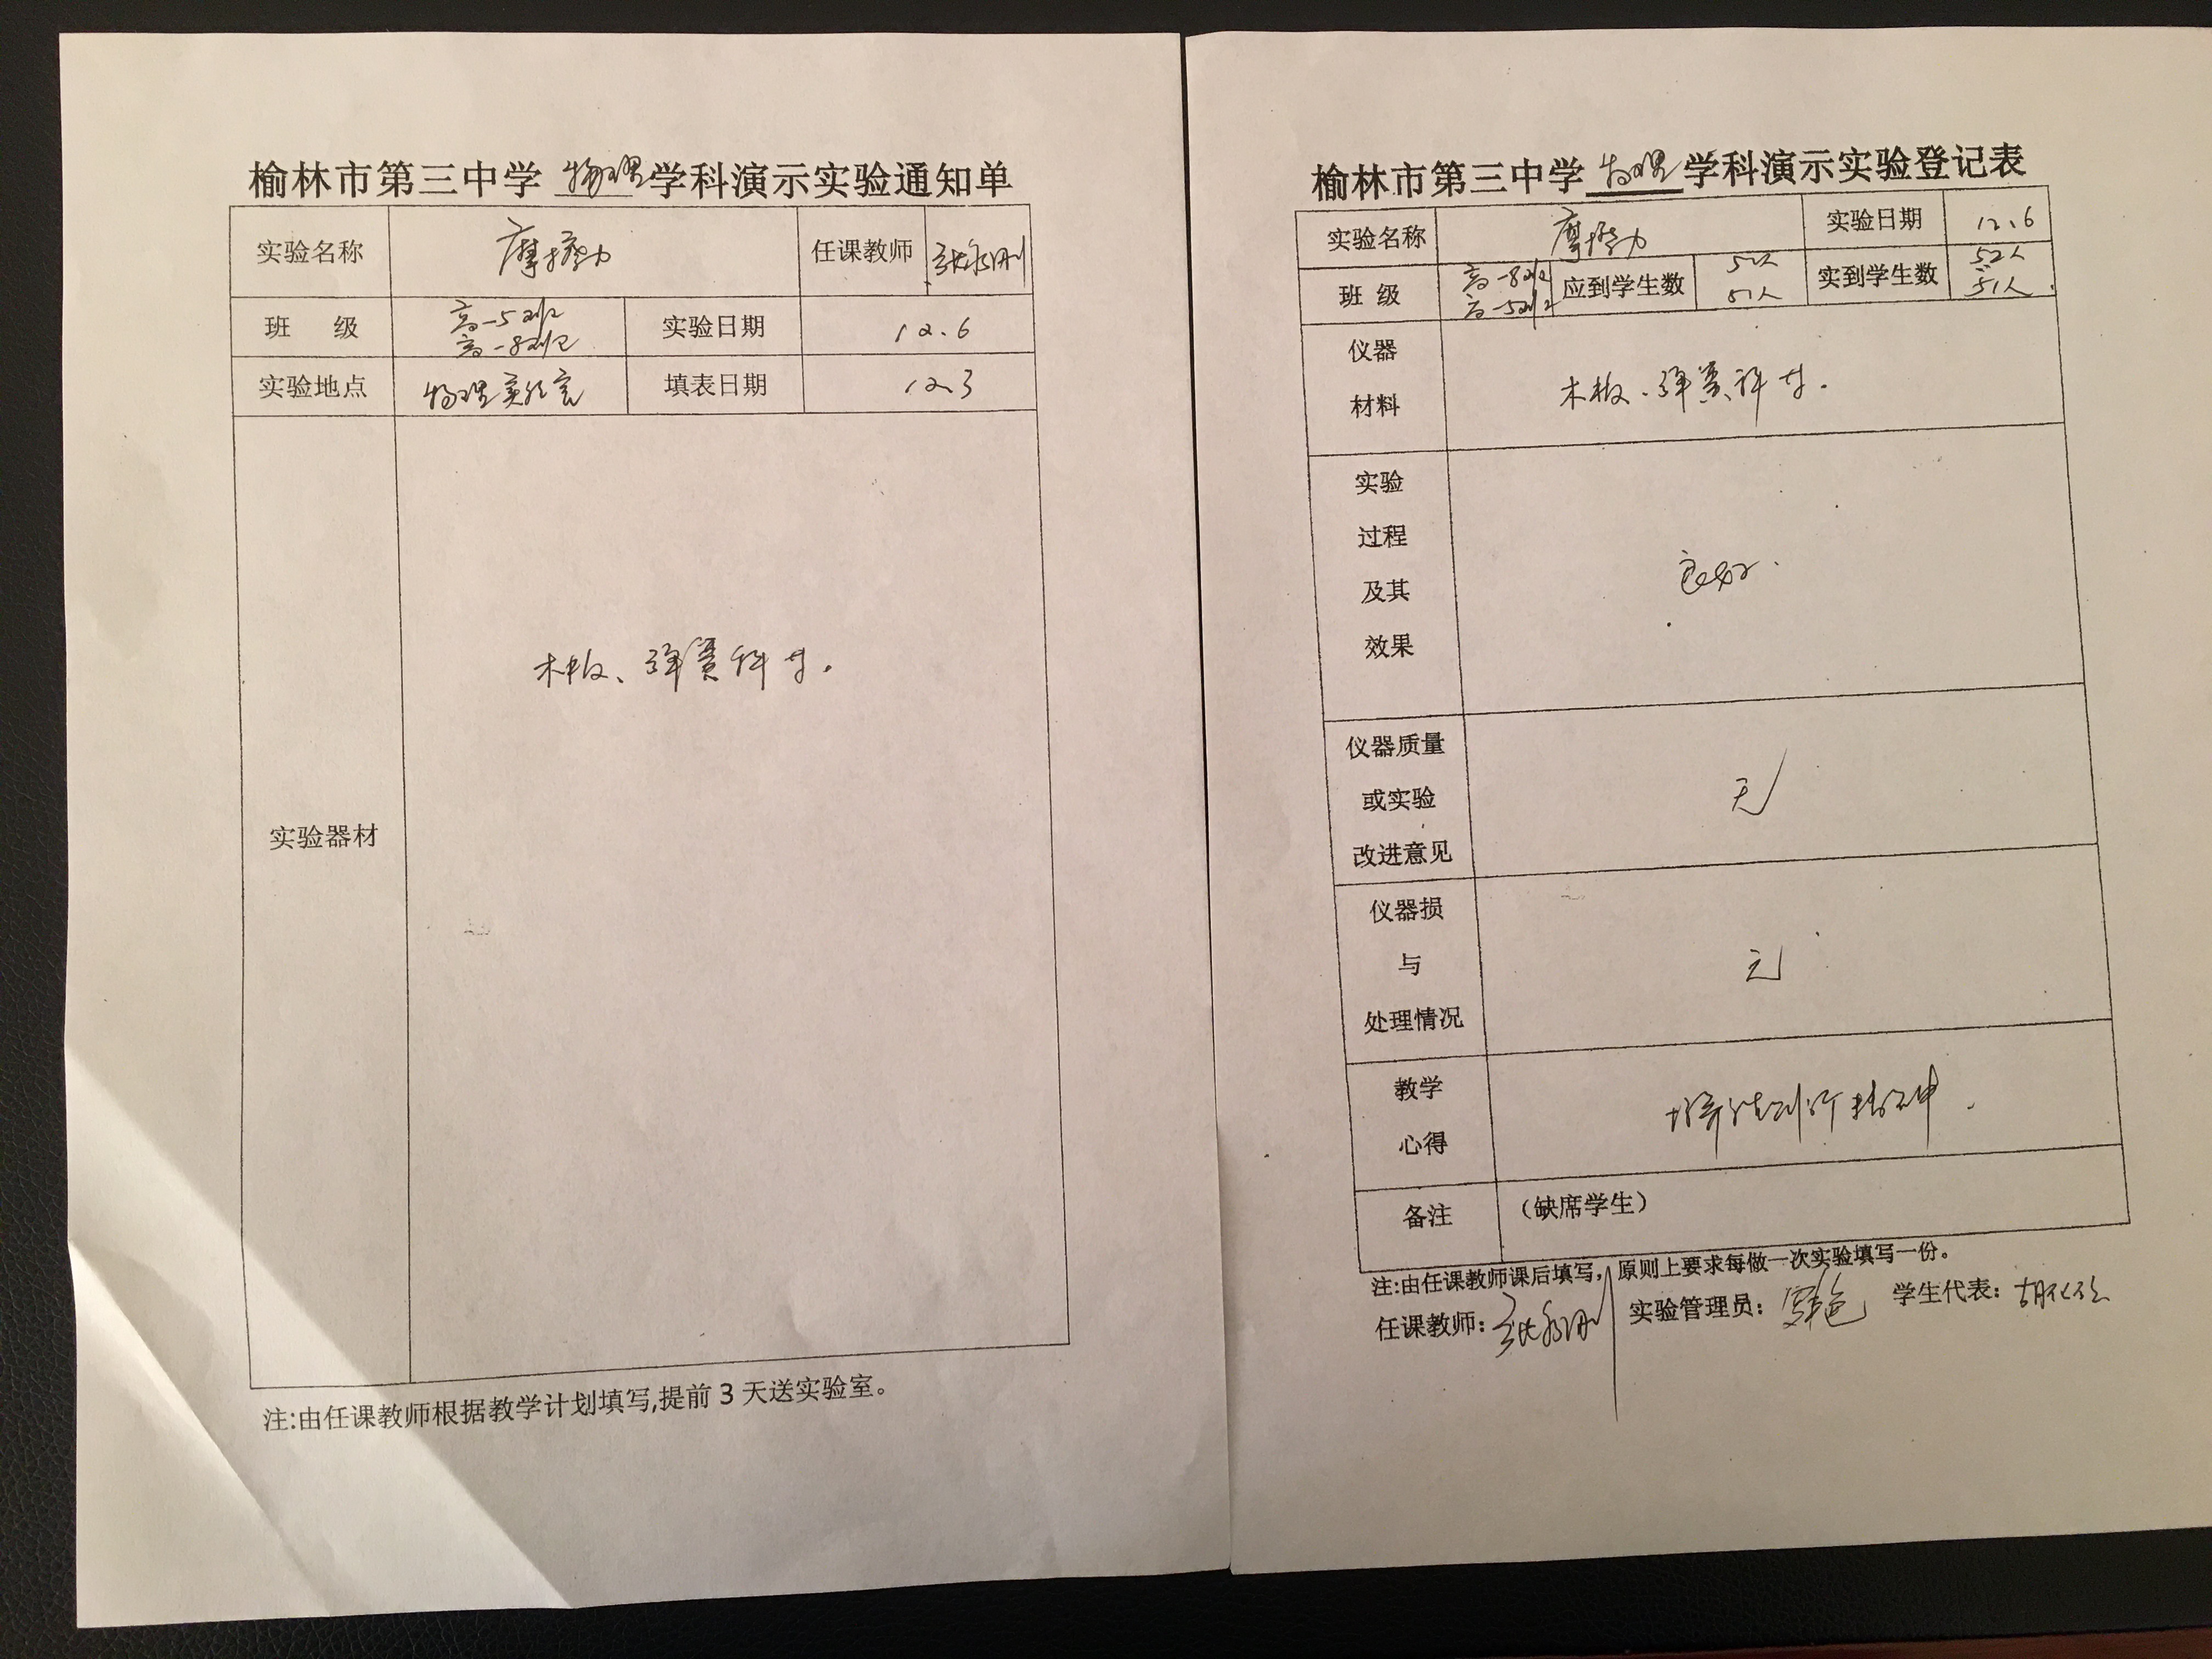 榆林市第三中学 物理 学科演示实验通知单
实验名称 摩擦力 任课教师 张永刚
班 级 高一5班 高一8班 实验日期 12.6
实验地点 物理实验室 填表日期 12.3
实验器材 木板、弹簧秤等.
注:由任课教师根据教学计划填写,提前3天送实验室。
榆林市第三中学 物理 学科演示实验登记表
实验名称 摩擦力 实验日期 12.6
班 级 高一8班 高一5班 应到学生数 52人 51人 实到学生数 52人 51人.
仪器
材料
木板、弹簧秤等.
实验
过程
及其
效果
良好.
仪器质量
或实验
改进意见
无
仪器损
与
处理情况
无
教学
心得
培养 精神.
备注 (缺席学生)
注:由任课教师课后填写,原则上要求每做一次实验填写一份。
任课教师:张永刚 实验管理员: 学生代表:胡